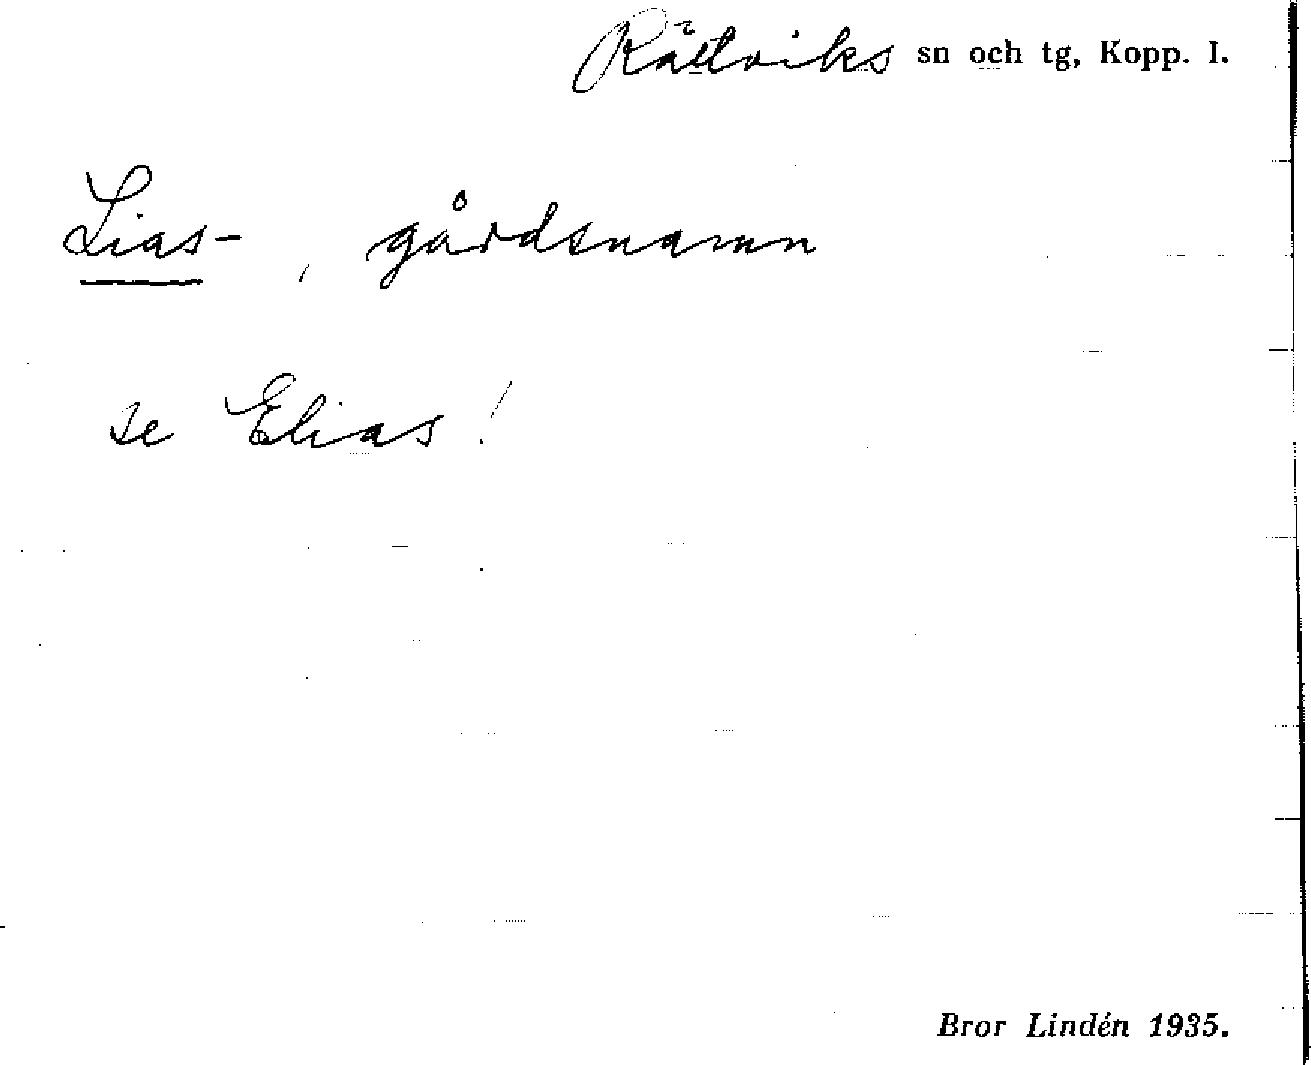 Rättviks sn och tg, Kopp. l.
Lias-, gårdsnamn
se Elias!
Bror Lindén 1935.